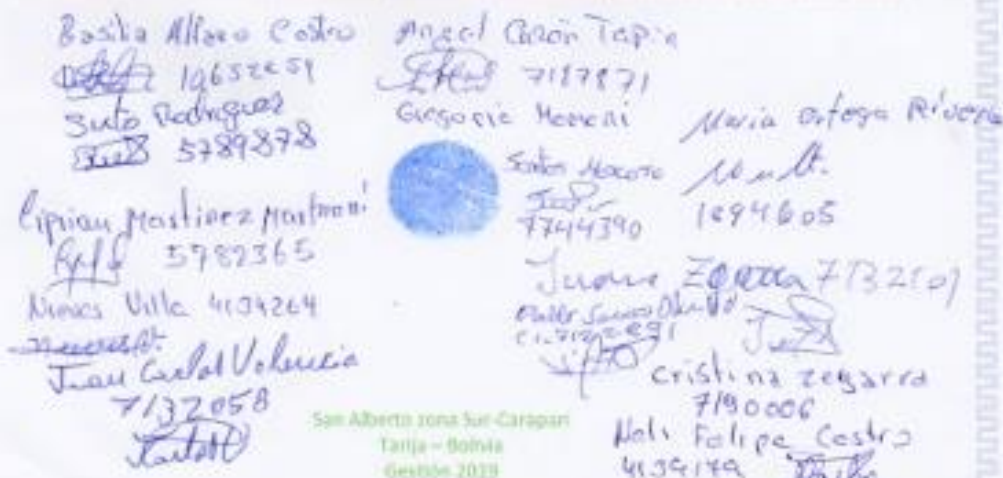 Basilia Alfaro Castro
10652659
Sixto Rodriguez
5789878
Ciprian Martinez Mamani
5782365
Nieves Villa 4134264
Nieves V.
Juan Carlos Valencia
7132058
Angel Cazon Tapia
7187871
Gregorio Mamani
Santos
7744390
Maria Ortega Rivera
1894605
Juana Zegarra
Cristina Zegarra
7190006
Felipe Castro
4134179
San Alberto zona Sur-Carapari
Tarija – Bolivia
Gestión 2019